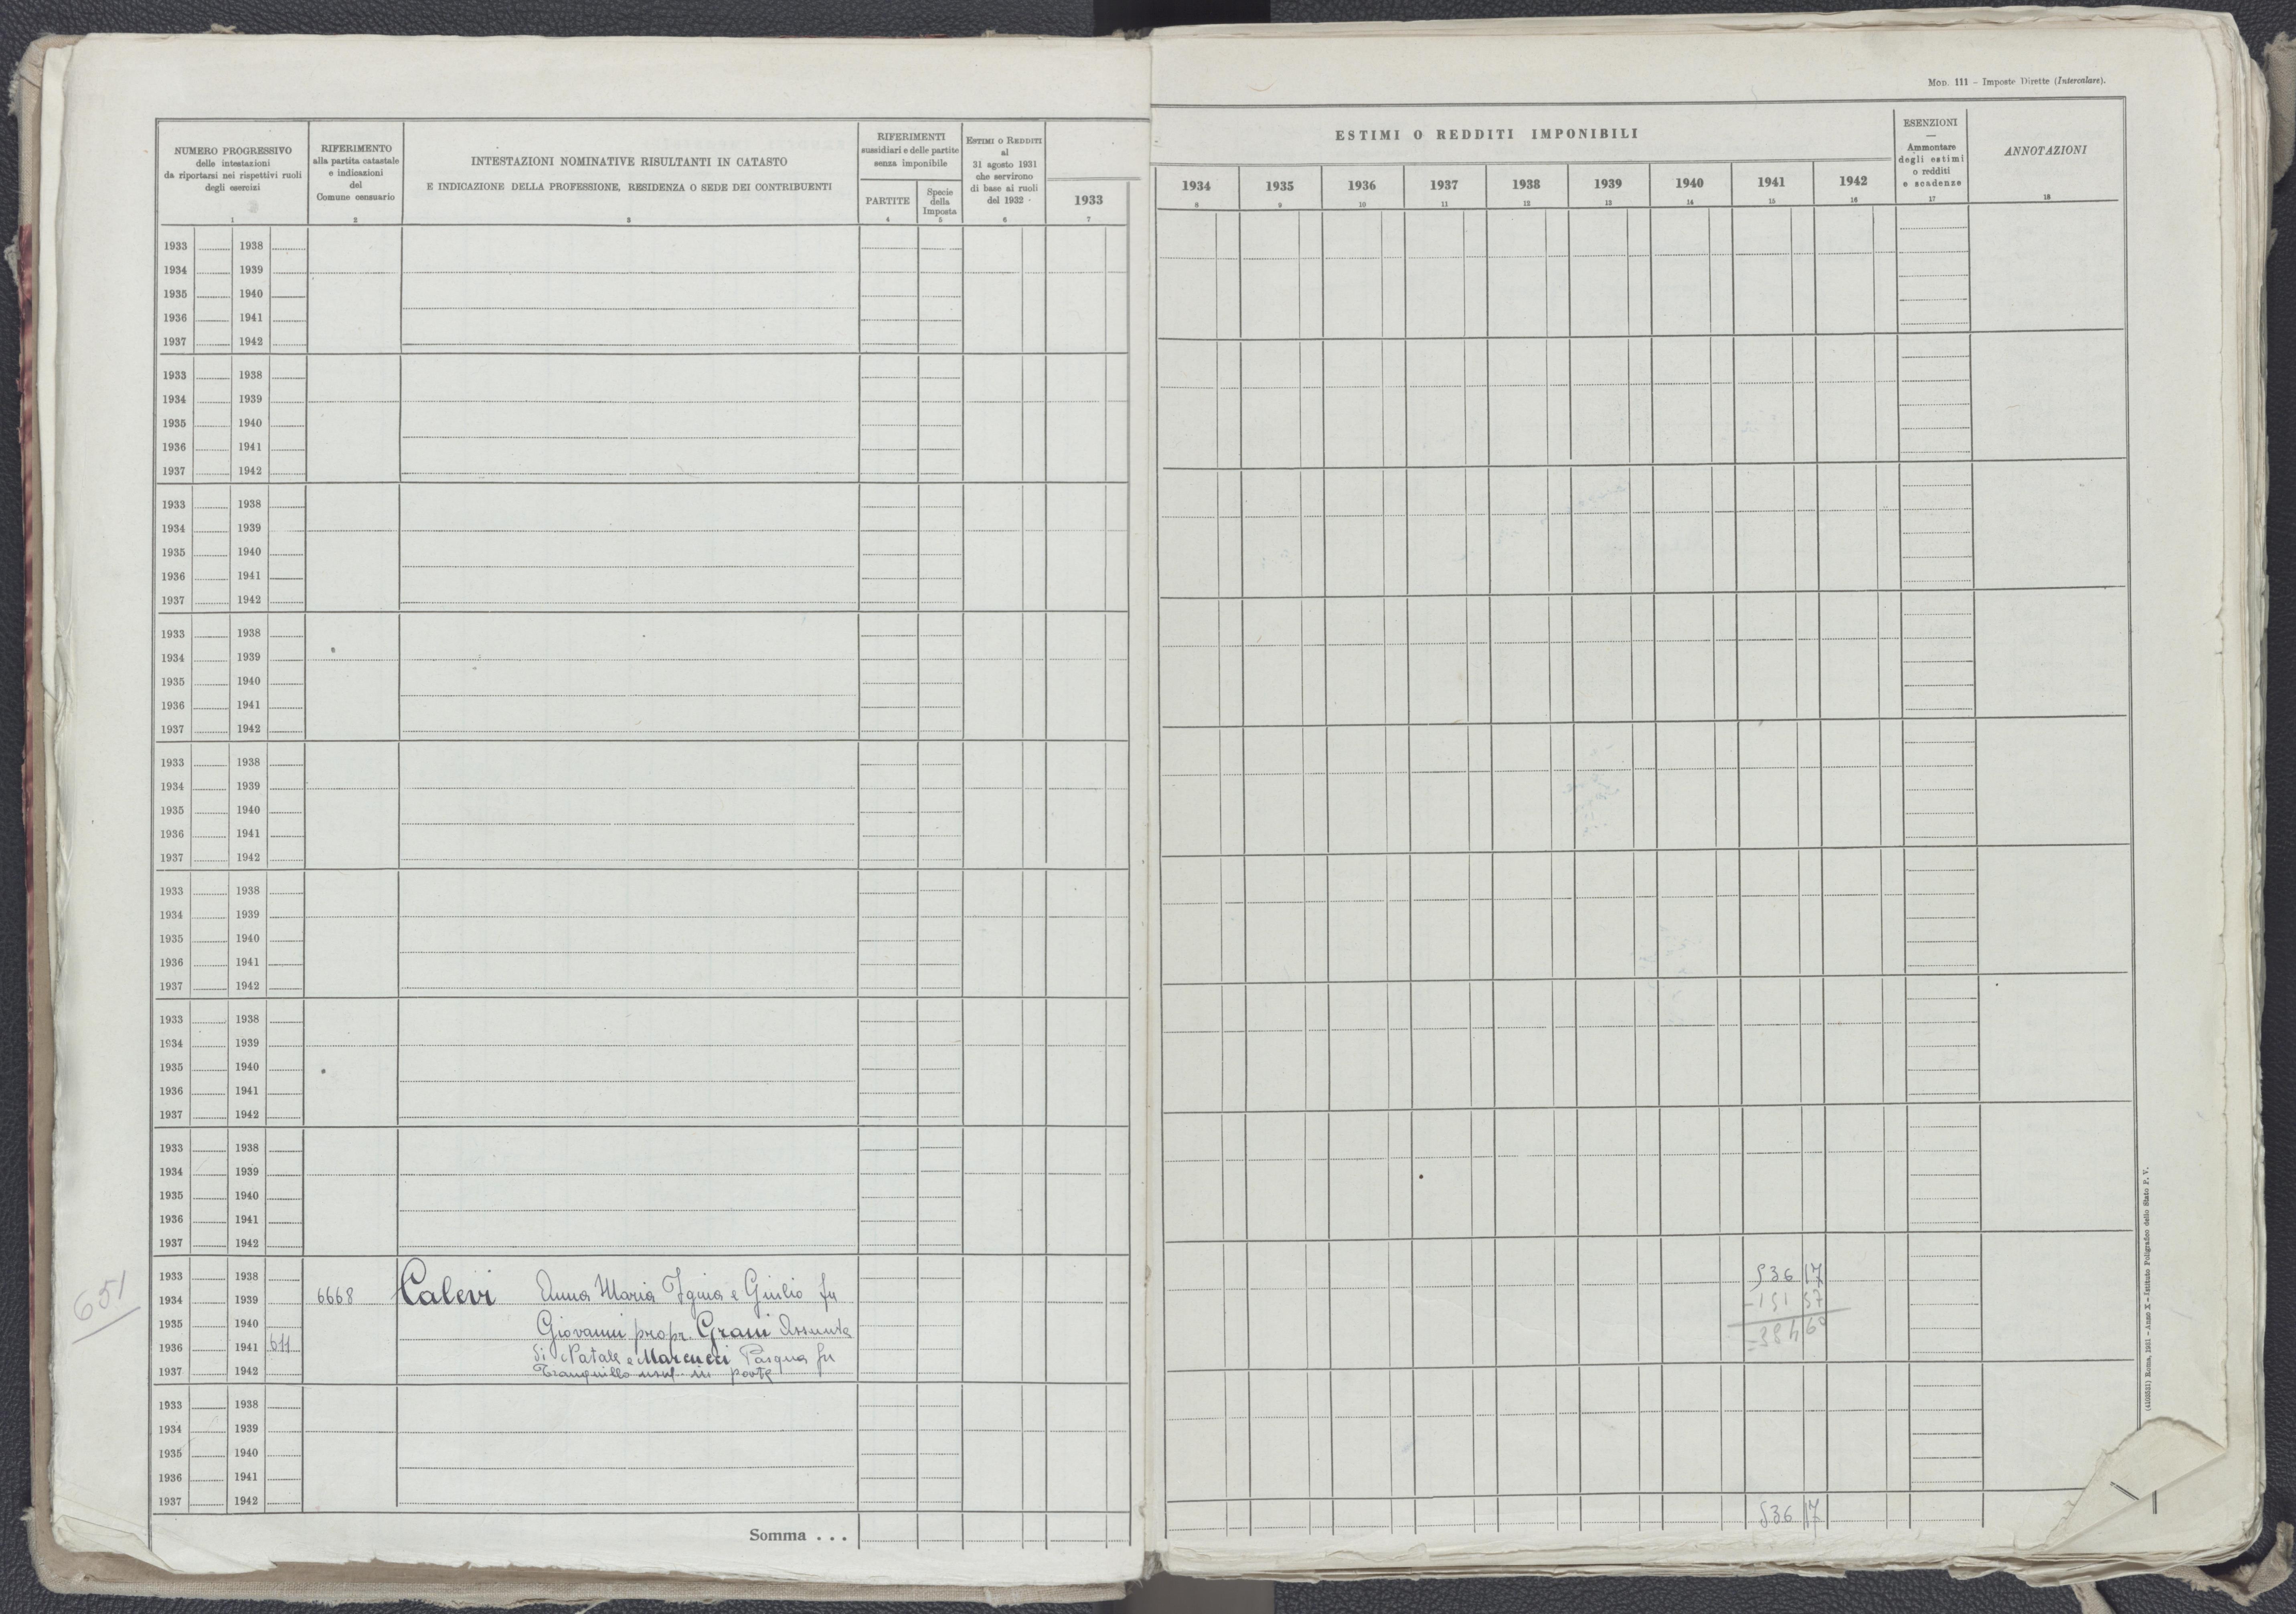 Mod. 111 – Imposte Dirette (Intercalare).
NUMERO PROGRESSIVO
delle intestazioni
da riportarsi nei rispettivi ruoli
degli esercizi
1
RIFERIMENTO
alla partita catastale
e indicazioni
del
Comune censuario
2
INTESTAZIONI NOMINATIVE RISULTANTI IN CATASTO
E INDICAZIONE DELLA PROFESSIONE, RESIDENZA O SEDE DEI CONTRIBUENTI
3
RIFERIMENTI
sussidiari e delle partite
senza imponibile
PARTITE
4
Specie
della
Imposta
5
ESTIMI O REDDITI
al
31 agosto 1931
che servirono
di base ai ruoli
del 1932
6
1933
7
ESTIMI O REDDITI IMPONIBILI
1934 1935 1936 1937 1938 1939 1940 1941 1942
8 9 10 11 12 13 14 15 16
ESENZIONI
—
Ammontare
degli estimi
o redditi
e scadenze
17
ANNOTAZIONI
18
1933 1938
1934 1939
1935 1940
1936 1941
1937 1942
1933 1938
1934 1939
1935 1940
1936 1941
1937 1942
1933 1938
1934 1939
1935 1940
1936 1941
1937 1942
1933 1938
1934 1939
1935 1940
1936 1941
1937 1942
1933 1938
1934 1939
1935 1940
1936 1941
1937 1942
1933 1938
1934 1939
1935 1940
1936 1941
1937 1942
1933 1938
1934 1939
1935 1940
1936 1941
1937 1942
1933 1938
1934 1939
1935 1940
1936 1941
1937 1942
651
1933 1938 536 17
1934 1939 6668 Calevi Anna Maria Iginia e Giulio fu -151 57
1935 1940 Giovanni propr. Grani Assunta -384 60
1936 1941 611 di Natale e Marcucci Pasqua fu
1937 1942 Tranquillo usuf. in parte
1933 1938
1934 1939
1935 1940
1936 1941
1937 1942
Somma . . . 536 17
(4103521) Roma, 1931 – Anno X – Istituto Poligrafico dello Stato P. V.